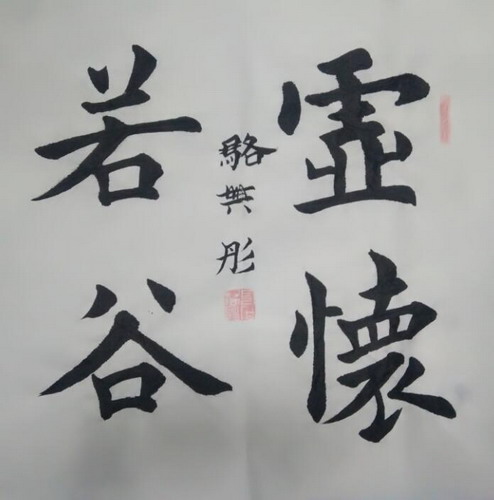 虛懷
若谷
駱 彤